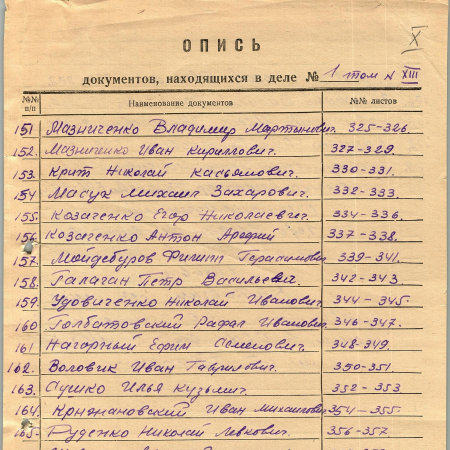 X
ОПИСЬ
документов, находящихся в деле № 1 том № XIII
№№ п/п Наименование документов №№ листов
151 Мазниченко Владимир Мартынович 325-326.
152. Мазниченко Иван Кириллович. 327-329.
153. Крит Николай Касьянович. 330-331.
154 Масук Михаил Захарович. 332-333.
155. Козаченко Егор Николаевич. 334-336.
156. Козаченко Антон 337-338.
157. Мойдебуров Филипп Герасимович 339-341.
158. Галаган Петр Васильевич. 342-343.
159. Удовиченко Николай Иванович. 344-345.
160 Голбатовский Рафал Иванович. 346-347.
161 Нагорный Ефим Семенович. 348-349.
162. Воловик Иван Гаврилович. 350-351.
163. Сушко Илья Кузьмич. 352-353
164. Иван Михайлович 354-355.
165. Руденко Николай Левкович. 356-357.